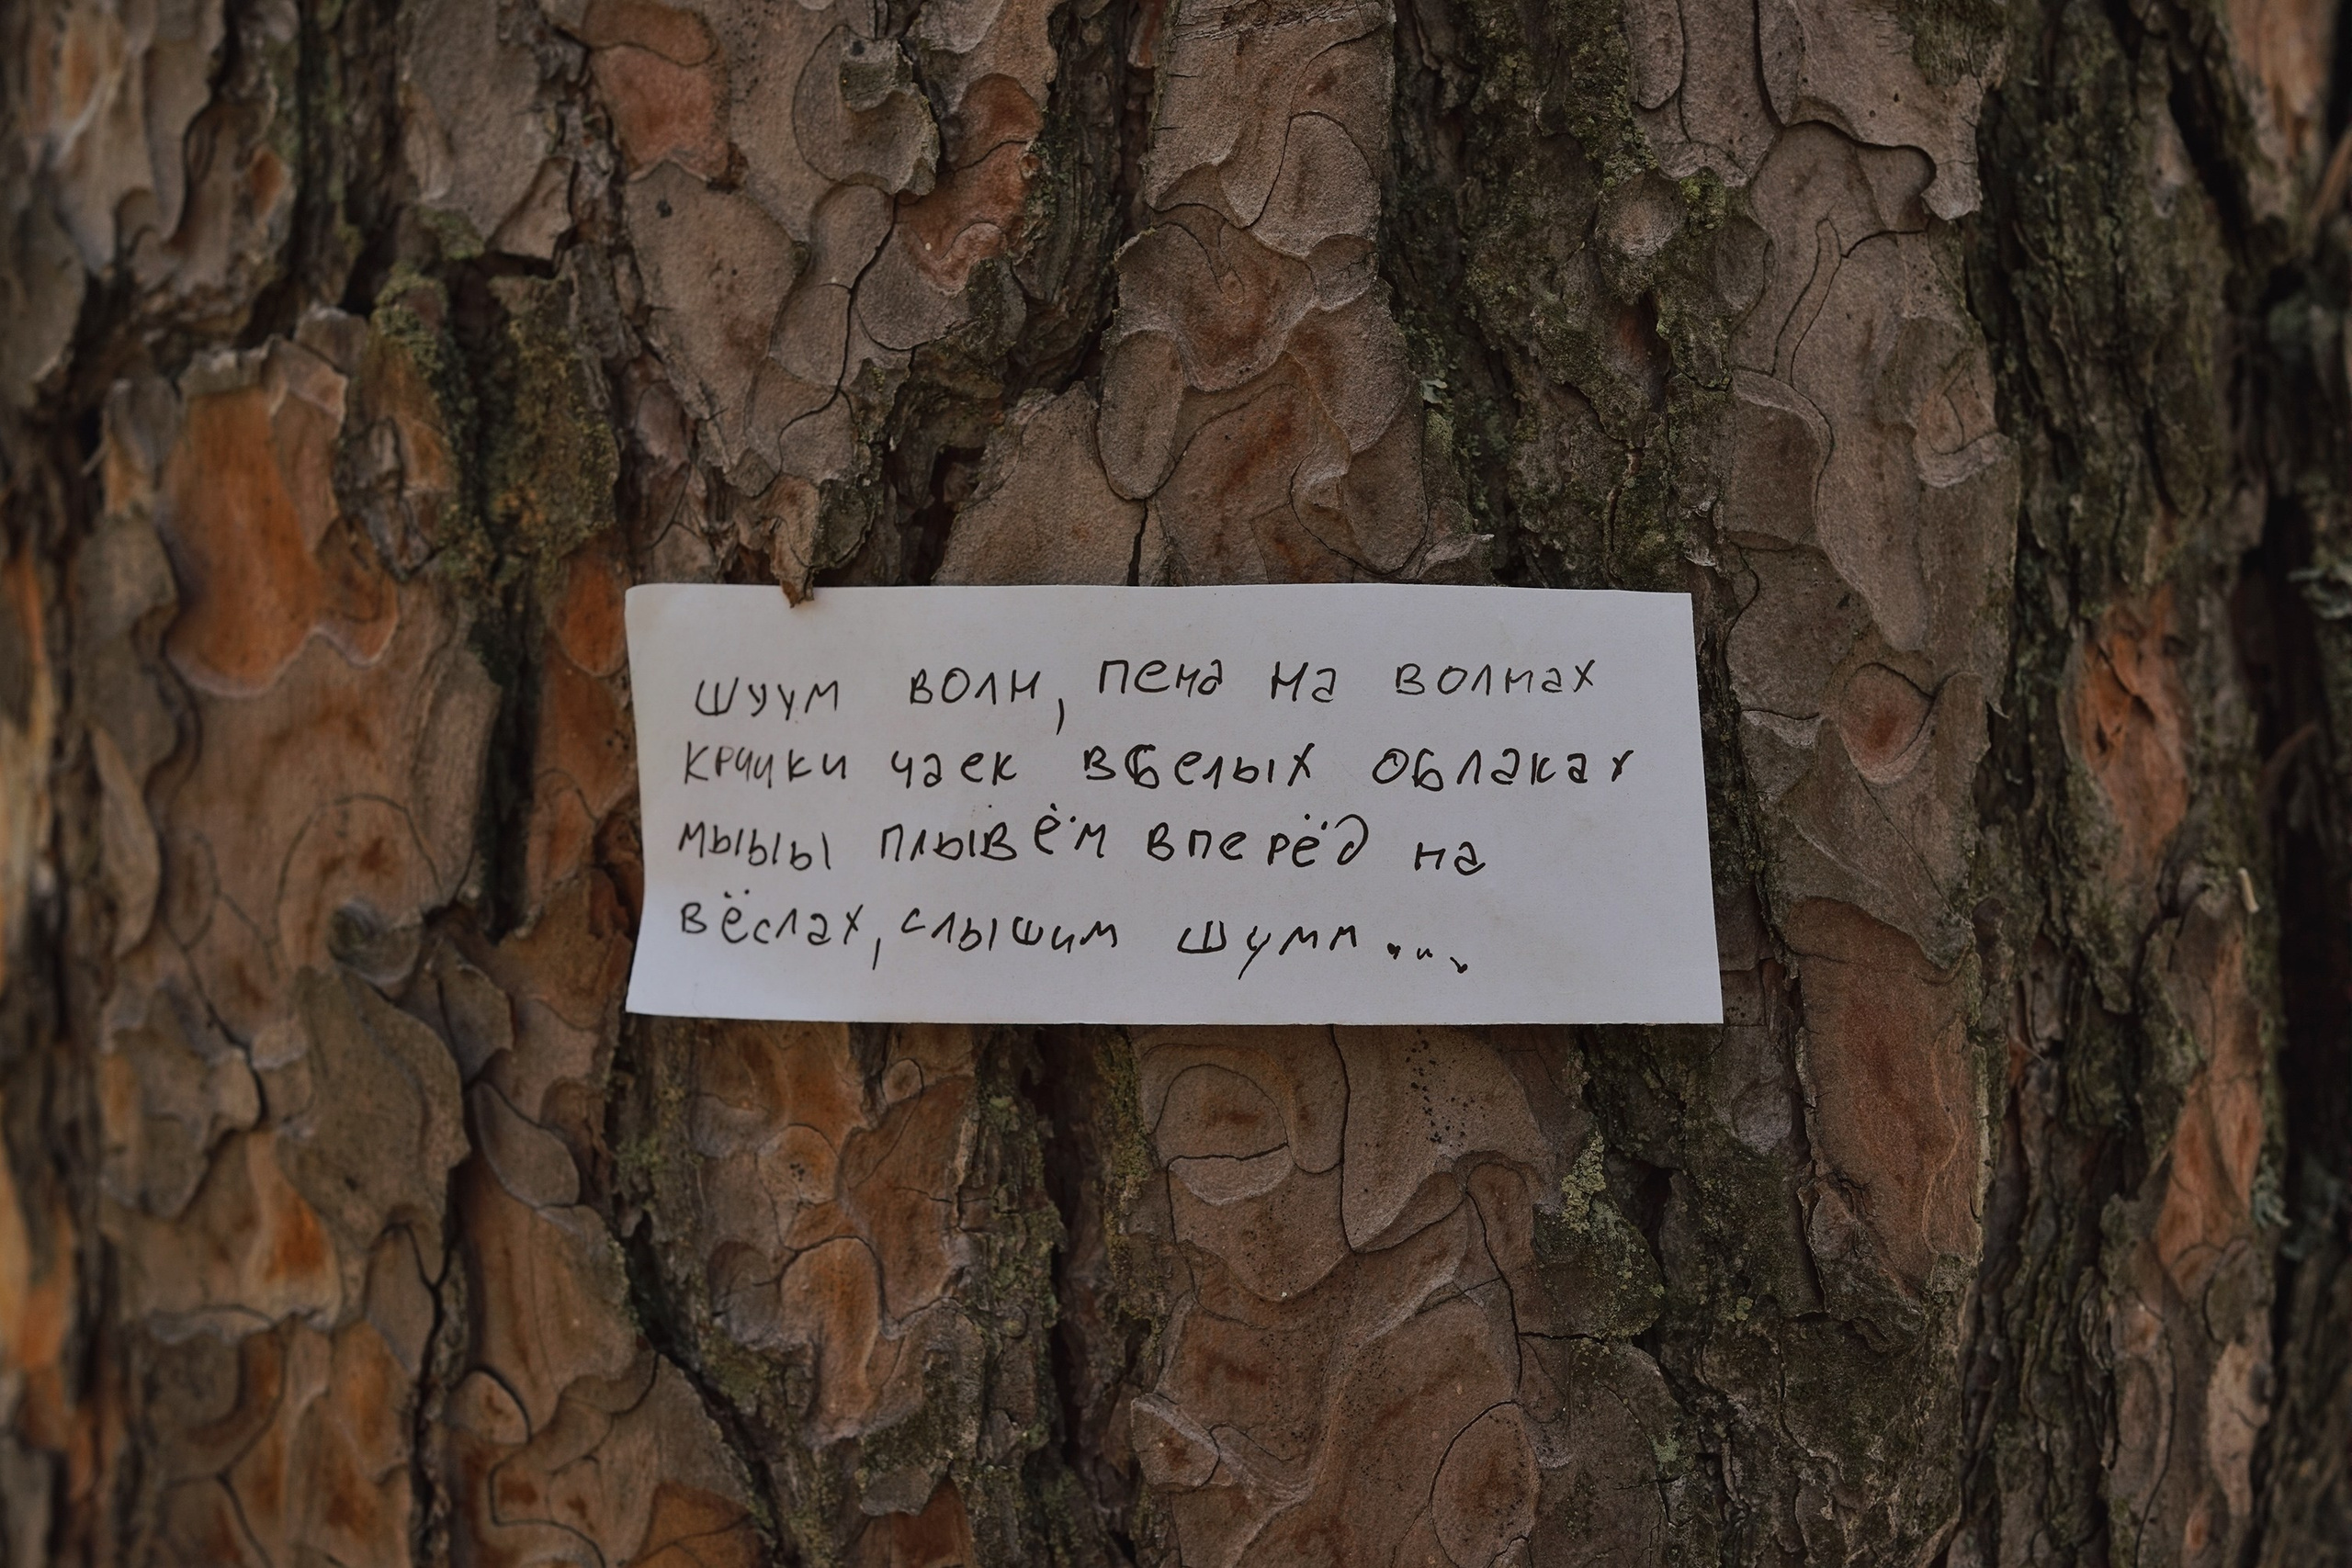 шуум волн, пена на волнах
крчики чаек вбелых облаках
мыыы плывём вперёд на
вёслах, слышим шумм...